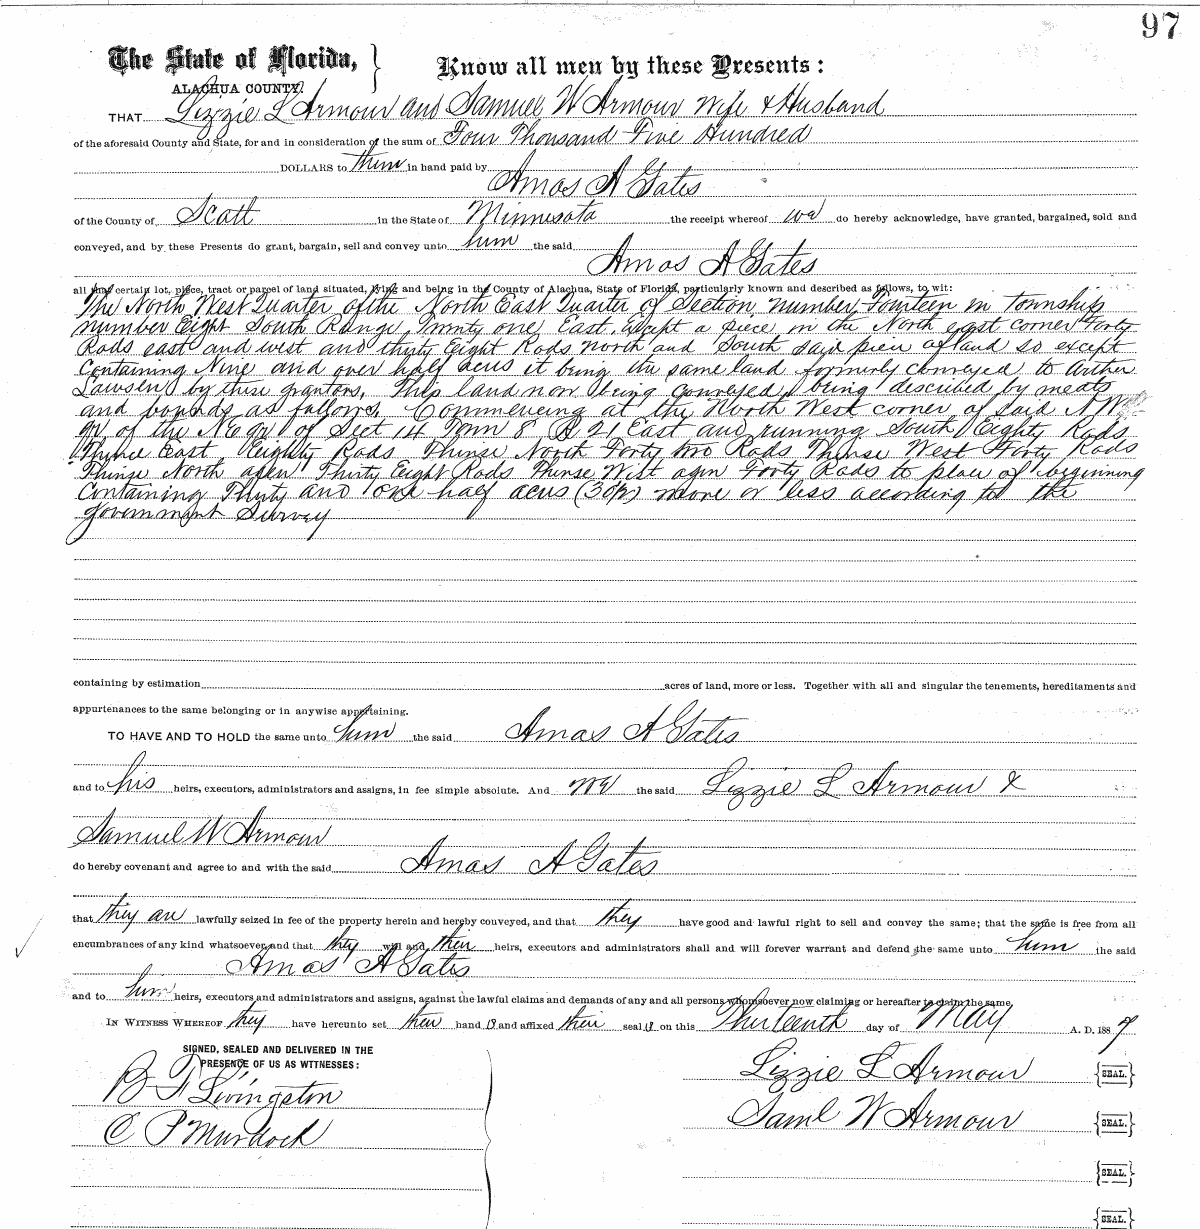 97
The State of Florida, } Know all men by these Presents:
ALACHUA COUNTY.
THAT Lizzie L Armour and Samuel W Armour Wife & Husband
of the aforesaid County and State, for and in consideration of the sum of Four Thousand Five Hundred
DOLLARS to them in hand paid by
Amos A Gates
of the County of Scott in the State of Minnesota the receipt whereof we do hereby acknowledge, have granted, bargained, sold and
conveyed, and by these Presents do grant, bargain, sell and convey unto him the said
Amos A Gates
all that certain lot, piece, tract or parcel of land situated, lying and being in the County of Alachua, State of Florida, particularly known and described as follows, to wit:
The North West Quarter of the North East Quarter of Section number Fourteen in Township
number Eight South Range Twenty one East. Except a piece in the North east corner Forty
Rods east and west and thirty Eight Rods north and South said piece of land so except
Containing Nine and over half acres it being the same land formerly conveyed to Arther
Lawsen by these grantors. This land now being conveyed being described by meats
and bounds as follows. Commencing at the North West corner of said N.W.
qr of the N E qr of Sect 14 Town 8 R 21 East and running South Eighty Rods
Thince East Eighty Rods Thinse North Forty two Rods Thinse West Forty Rods
Thinse North agen Thirty Eight Rods Thinse West agen Forty Rods to place of beginning
Containing Thirty and one half acres (30½) more or less according to the
Government Survey
containing by estimation acres of land, more or less. Together with all and singular the tenements, hereditaments and
appurtenances to the same belonging or in anywise appertaining.
TO HAVE AND TO HOLD the same unto him the said Amas A Gates
and to his heirs, executors, administrators and assigns, in fee simple absolute. And we the said Lizzie L Armour &
Samuel W Armour
do hereby covenant and agree to and with the said Amas A Gates
that they are lawfully seized in fee of the property herein and hereby conveyed, and that they have good and lawful right to sell and convey the same; that the same is free from all
encumbrances of any kind whatsoever, and that they will and their heirs, executors and administrators shall and will forever warrant and defend the same unto him the said
Amas A Gates
and to him heirs, executors and administrators and assigns, against the lawful claims and demands of any and all persons whomsoever now claiming or hereafter to claim the same.
IN WITNESS WHEREOF they have hereunto set their hand s and affixed their seal s on this Thirteenth day of May A. D. 188
SIGNED, SEALED AND DELIVERED IN THE
PRESENCE OF US AS WITNESSES:
B T Livingston
C P Murdock
Lizzie L Armour {SEAL.}
Saml W Armour {SEAL.}
{SEAL.}
{SEAL.}